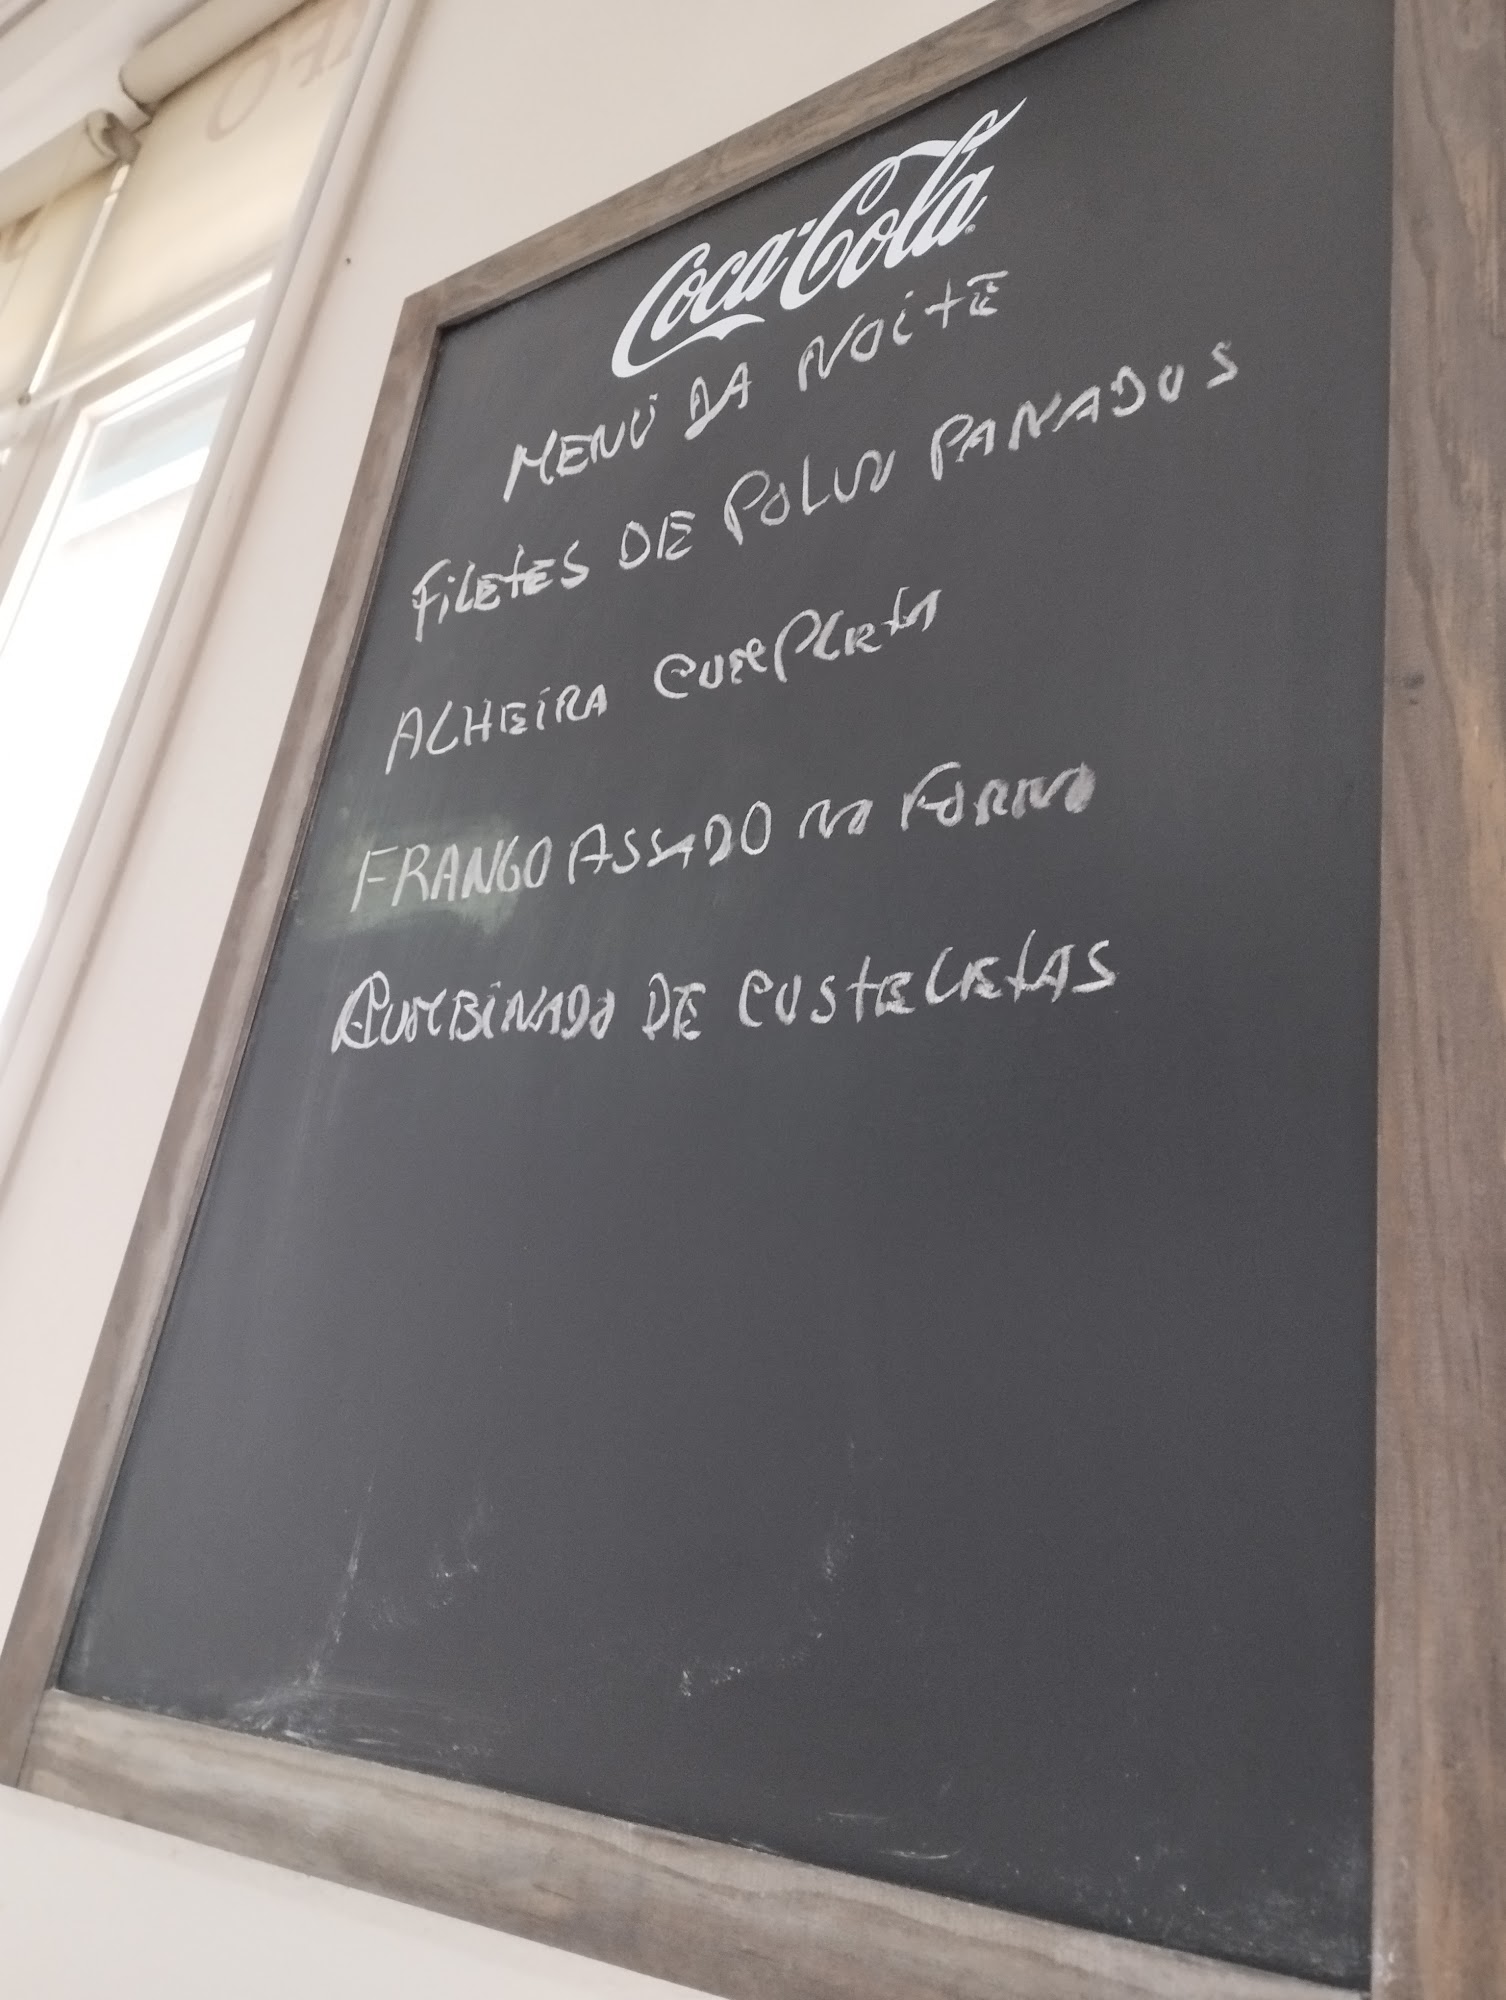 Coca-Cola
MENÚ DA NOITE
FILETES DE POLVO PANADOS
ALHEIRA COMPLETA
FRANGO ASSADO NO FORNO
COMBINADO DE COSTELETAS